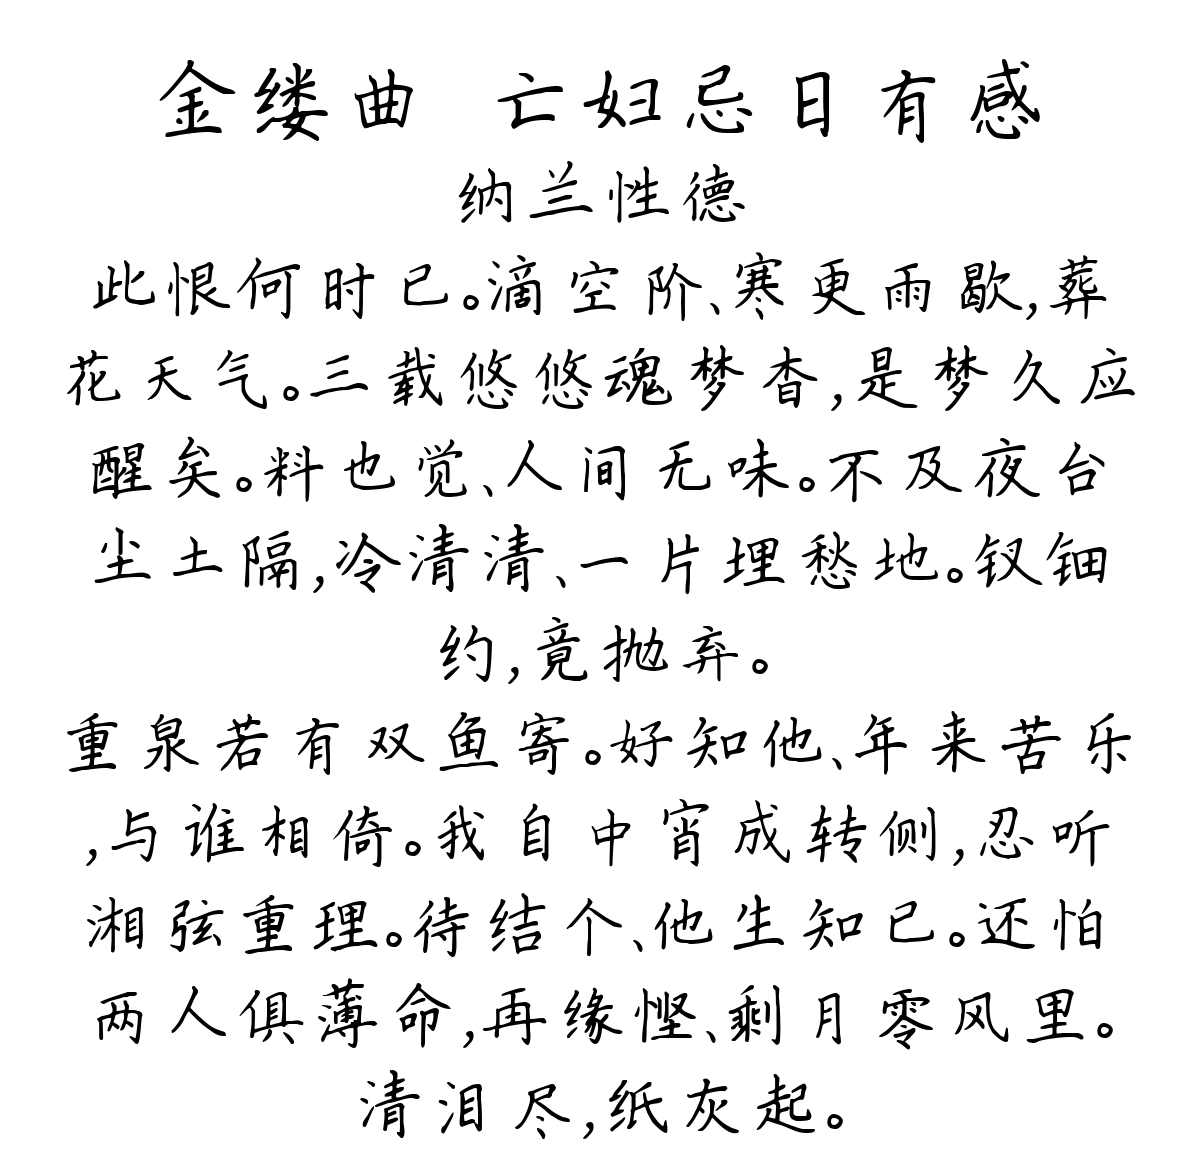 金缕曲 亡妇忌日有感
纳兰性德
此恨何时已。滴空阶、寒更雨歇,葬
花天气。三载悠悠魂梦杳,是梦久应
醒矣。料也觉、人间无味。不及夜台
尘土隔,冷清清、一片埋愁地。钗钿
约,竟抛弃。
重泉若有双鱼寄。好知他、年来苦乐
,与谁相倚。我自中宵成转侧,忍听
湘弦重理。待结个、他生知已。还怕
两人俱薄命,再缘悭、剩月零风里。
清泪尽,纸灰起。